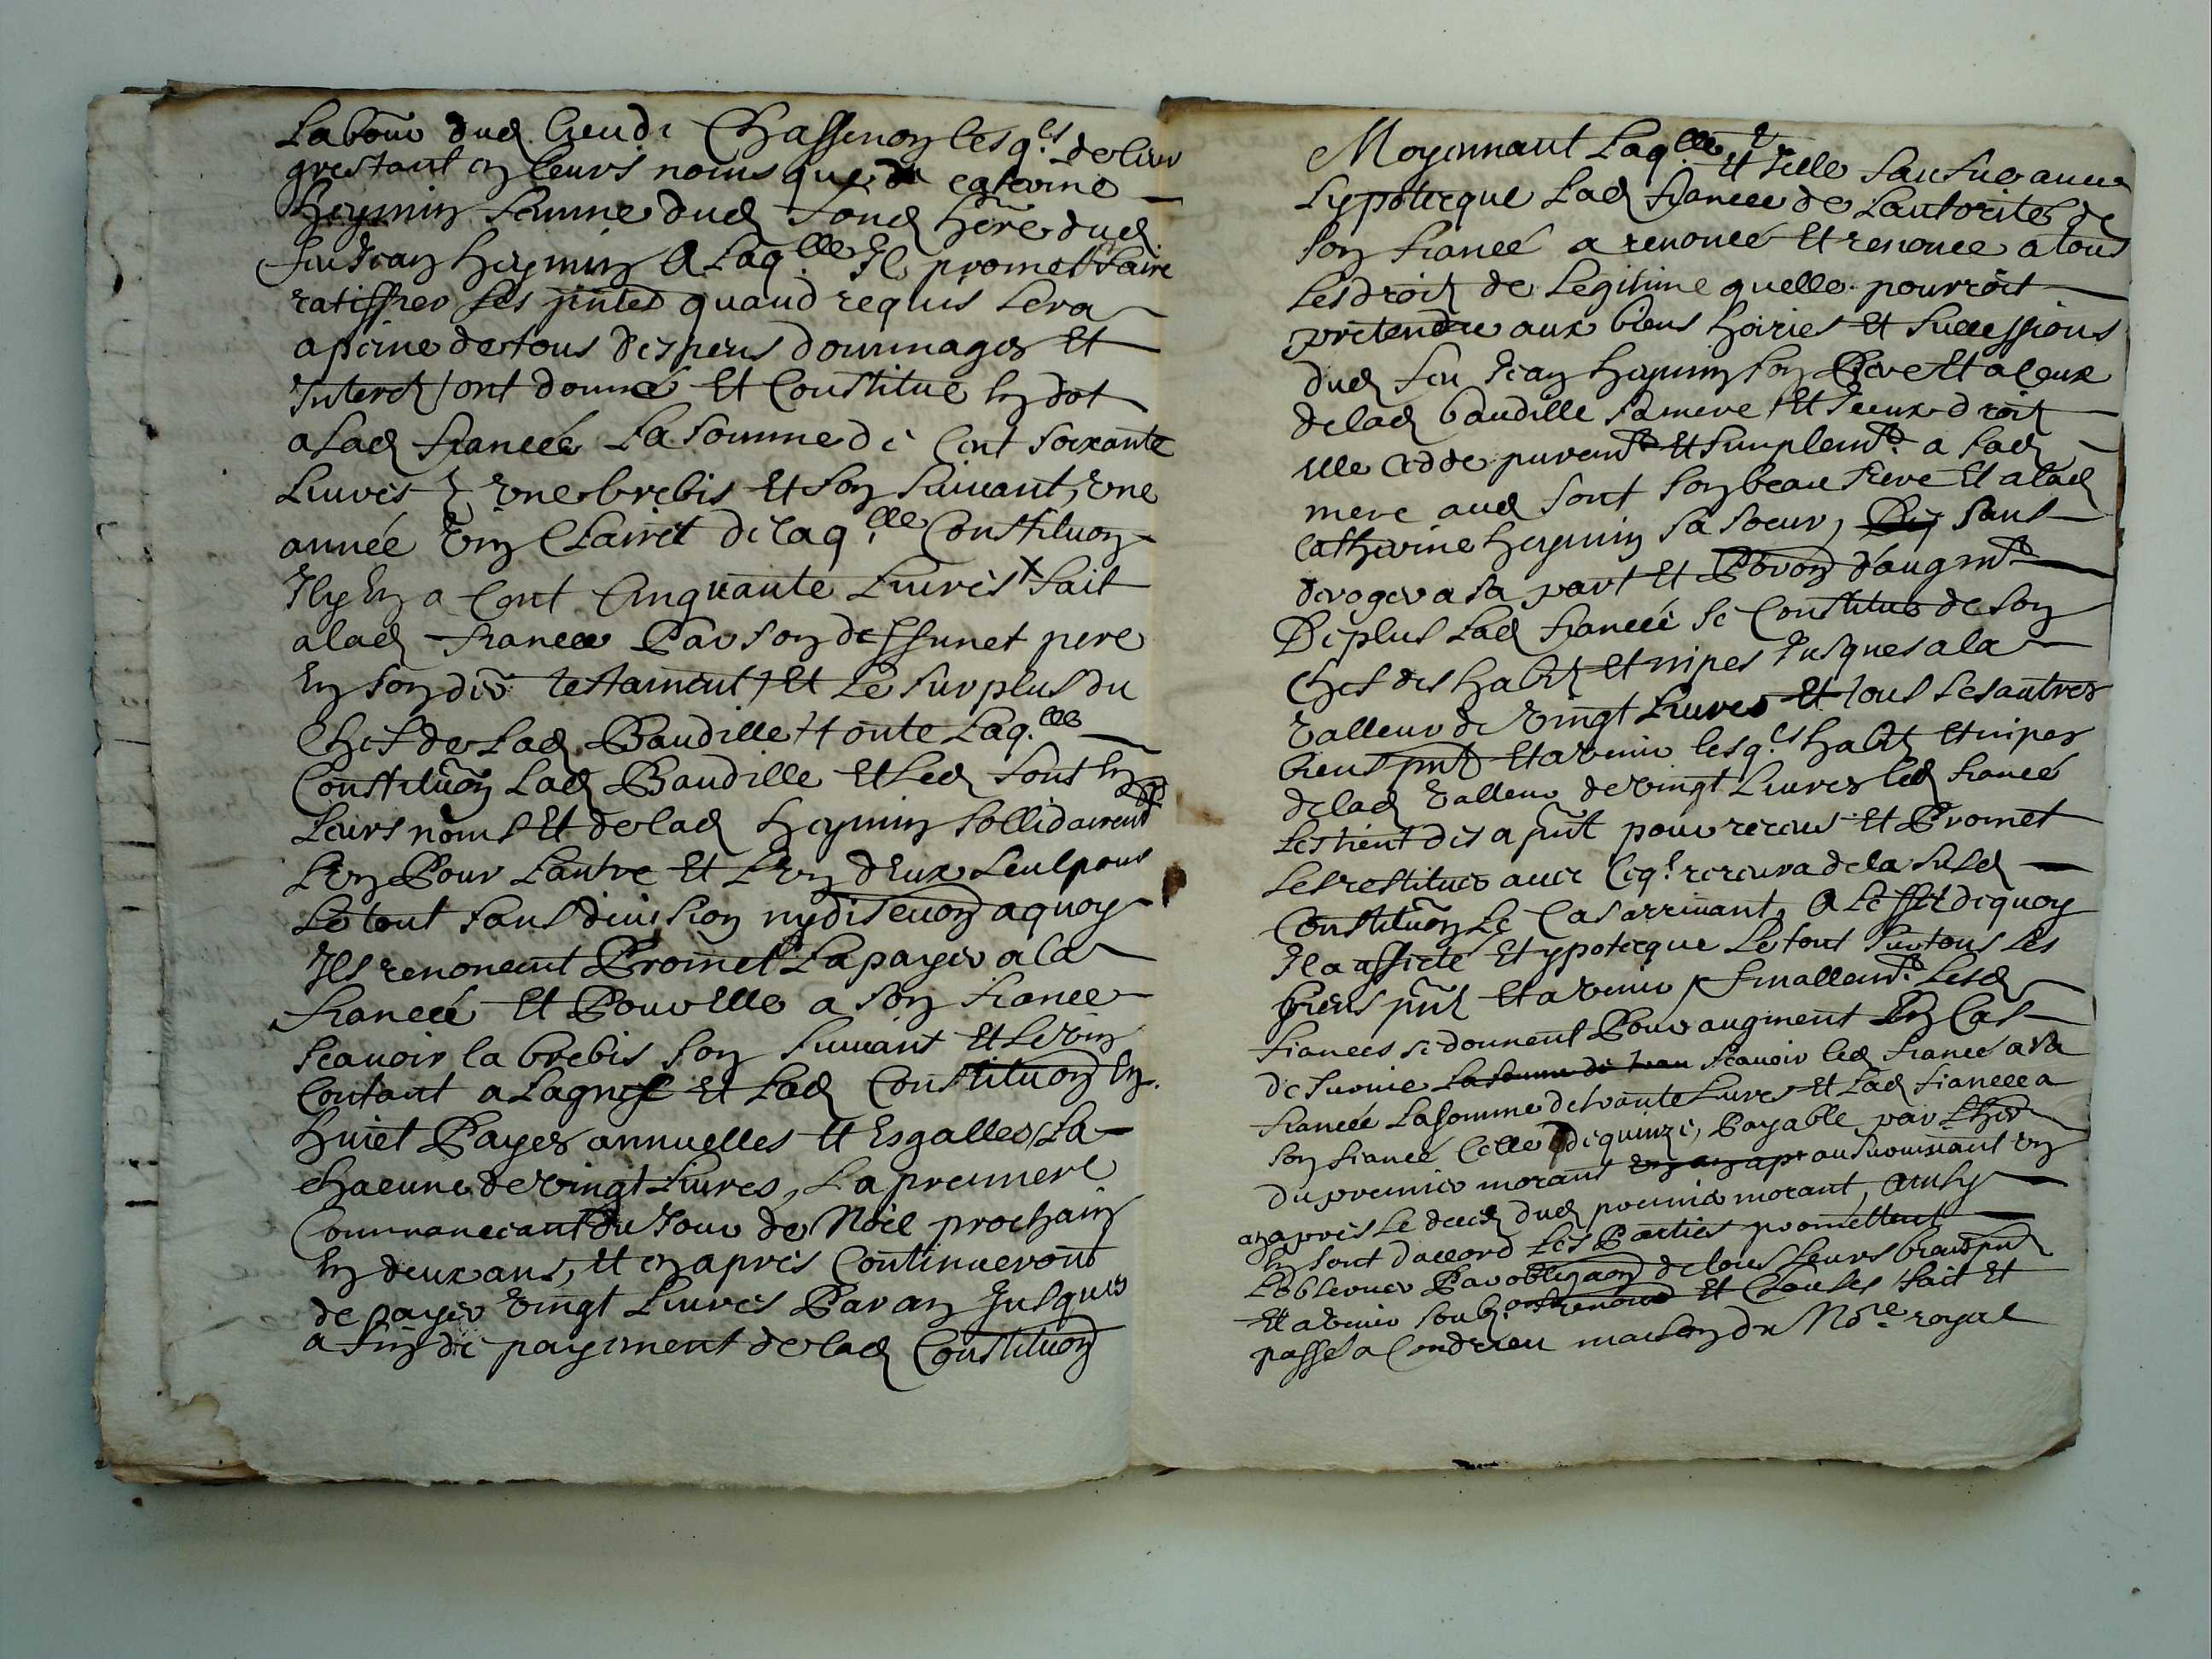 Labour dud lieu de Chassenon lesq.ls de leur
gre tant en leurs noms que de caterine
Heymin femme dud Font here dud
feu Jean Heymin a laq.lle Il promet faire
ratiffier ses pntes quand requis sera
a peine de tous despens dommages et
Interets ont donné et Constitué en dot
a lad fiancée la somme de Cent soixante
Livres une brebis et son suivant, une
année vin Clairet de laq.lle Constituon
Il y en a Cent Cinquante Livres fait
a lad fiancée Par son deffunct pere
en son der testament, et le surplus du
Chef de lad Baudille toute laq.lle
Constituon lad Baudille et led Font en
leurs noms et de lad Heymin sollidairemt
l'un Pour l'autre et l'un d'eux seul pour
le tout sans division ny discuon a quoy
Ils renoncent Promet la payer a la
fiancée et Pour elle a son fiancé
scavoir la brebis son suivant et le vin
Contant a l'agnel et lad Constituon en
huict Payes annuelles et esgalles, la
chacune de vingt Livres, la premiere
Commancant du Jour de Noel prochain
en deux ans, et en apres Continueront
de payer vingt Livres Par an Jusques
a fin de payement de lad Constituon
Moyennant laq.lle et Icelle sauf sus aucun
Lypotecque lad fiancee de lautorité de
son fiancé a renoncé et renonce a tous
les droits de Legitime quelle pourroit
pretendre aux biens hoiries et successions
dud feu Jean Heymin son Pere et a Ceux
de lad Baudille sa mere et Iceux droits
elle cedde puremt et simplemt a lad
mere aud Font son beau frere et a lad
Catherine Heymin sa soeur, sans
deroger a sa part et Poron d'augmt
De plus lad fiancée se Constitue de son
Chef des habits et nipes Jusques a la
valleur de vingt Livres et tous ses autres
biens pnts et a venir lesq.ls habits et nipes
de lad valleur de vingt Livres led fiancé
les tient des a pnt pour receus et Promet
les restituer avec Ceq.l recevra de la susd
Constituon le Cas arrivant, a l'effet de quoy
Il a affecté et ypotecque le tout sur tous ses
biens pnts et a venir finallemt. lesd
fiances se donnent Pour augment en Cas
de survie la somme de tran scavoir led fiancé a sa
fiancée la somme de trante Livres et lad fiancée a
son fiancé Celle de quinze, Payable par l'her
du premier morant un an apr au survivant un
an apres le deces dud premier morant, ainsy
en sont d'accord les Parties promettent
l'observer Par obligaon de tous leurs biens pnts
et a venir soubz. renonc et Clauses fait et
passé a Condrieu maison du Nore royal